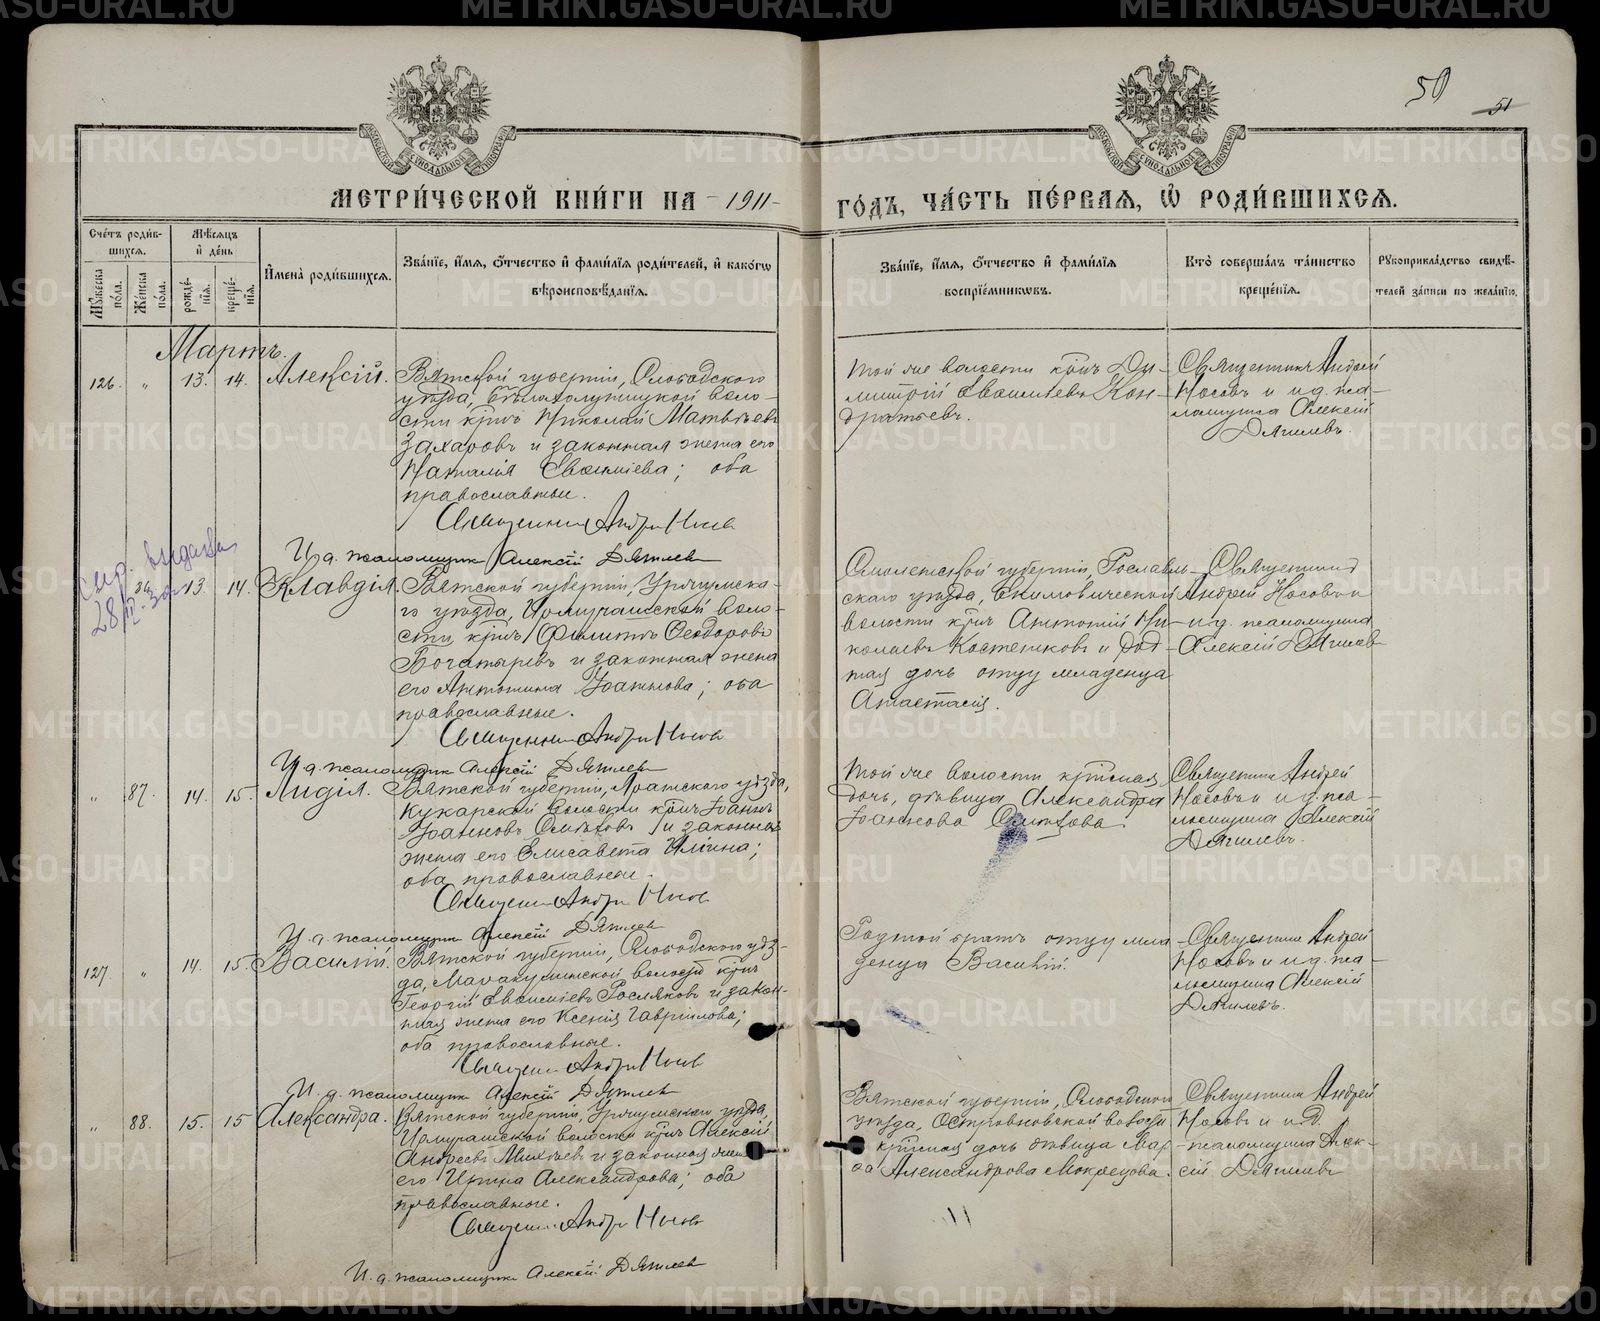 50
51
МОСКОВСКОЙ СѴНОДАЛЬНОЙ ТИПОГРАФІИ
МОСКОВСКОЙ СѴНОДАЛЬНОЙ ТИПОГРАФІИ
МЕТРИ́ЧЕСКОЙ КНИ́ГИ НА -1911-
ГО́ДЪ, ЧА́СТЬ ПЕ́РВАЯ, Ѡ҆ РОДИ́ВШИХСЯ.
Сче́тъ роди́в-
шихся.
Мꙋ́жеска по́ла.
Же́нска по́ла.
Мѣ́сяцъ
и҆ де́нь
рожде́-нїя.
креще́-нїя.
И҆мена̀ роди́вшихся.
Зва́нїе, и҆́мя, ѻ҆́тчество и҆ фами́лїя роди́телей, и҆ како́гѡ
вѣроисповѣ́данїя.
Зва́нїе, и҆́мя, ѻ҆́тчество и҆ фами́лїя
воспрїе́мникѡвъ.
Кто̀ соверша́лъ та́инство
креще́нїя.
Рꙋкоприкла́дство свидѣ́-
телей за́писи по жела́нїю.
Мартъ.
126. " 13. 14. Алексій.
Вятской губерніи, Слободского
уѣзда, Бѣлахолуницкой воло-
сти кр-нъ Николай Матвѣевъ
Захаровъ и законная жена его
Наталія Евсиміева; оба
православные.
Священникъ Андрей Носовъ
И. д. псаломщика Алексій Дягилевъ
Той же волости кр-нъ Ди-
митрій Кон-
дратьевъ.
Священникъ Андрей
Носовъ и и. д. пса-
ломщика Алексій
Дягилевъ.
выдана
28
13. 14. Клавдія.
Вятской губерніи, Уржумска-
го уѣзда, волос-
сти, кр-нъ Филиппъ Ѳеодоровъ
Богатыревъ и законная жена
его Антонина Іоаннова; оба
православные.
Священникъ Андрей Носовъ
И. д. псаломщика Алексій Дягилевъ
Смоленской губерніи, Рославль-
скаго уѣзда,
волости кр-нъ Антоній Ни-
колаевъ и род-
ная дочь отцу младенца
Анастасія.
Священникъ
Андрей Носовъ и
и. д. псаломщика
Алексій Дягилевъ
" 87. 14. 15. Лидія.
Вятской губерніи, Яранскаго уѣзда,
Кукарской волости кр-нъ Іоаннъ
Іоанновъ и законная
жена его Елисавета Ильина;
оба православные.
Священникъ Андрей Носовъ
И. д. псаломщика Алексій Дягилевъ
Той же волости крестьянская
дочь, дѣвица Александра
Іоаннова
Священникъ Андрей
Носовъ и и. д. пса-
ломщика Алексій
Дягилевъ.
127. " 14. 15. Василій.
Вятской губерніи, Слободского уѣз-
да, волости кр-нъ
Георгій Росляковъ и закон-
ная жена его Ксенія Гавриилова;
оба православные.
Священникъ Андрей Носовъ
И. д. псаломщика Алексій Дягилевъ
Родной братъ отцу мла-
денца Василій.
Священникъ Андрей
Носовъ и и. д. пса-
ломщика Алексій
Дягилевъ.
" 88. 15. 15 Александра.
Вятской губерніи, Уржумскаго уѣзда,
волости кр-нъ Алексій
Андреевъ Михѣевъ и законная жена
его Ирина Александрова; оба
православные.
Священникъ Андрей Носовъ
И. д. псаломщика Алексій Дягилевъ
Вятской губерніи, Слободской
уѣзда, Островновской волости
дочь дѣвица Мар-
ѳа Александрова Мокрецова.
Священникъ Андрей
Носовъ и и. д.
псаломщика Алек-
сій Дягилевъ
METRIKI.GASO-URAL.RU